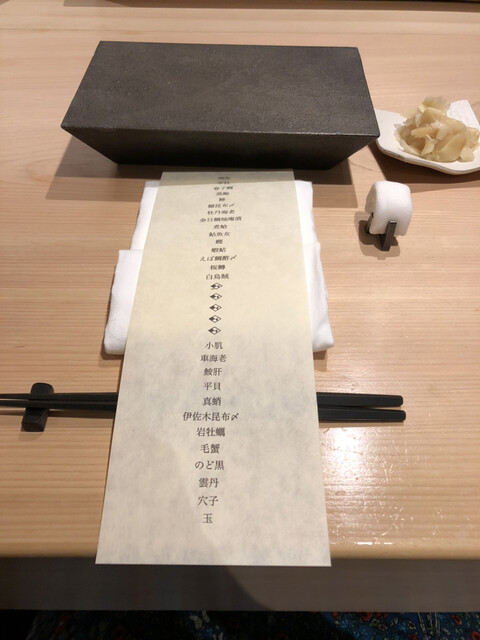 春子鯛
煮鮑
鰊
鰆昆布〆
牡丹海老
金目鯛味噌漬
煮蛤
鮎魚女
鰹
蝦蛄
えぼ鯛酢〆
桜鱒
白烏賊
小肌
車海老
鮟肝
平貝
真蛸
伊佐木昆布〆
岩牡蠣
毛蟹
のど黒
雲丹
穴子
玉